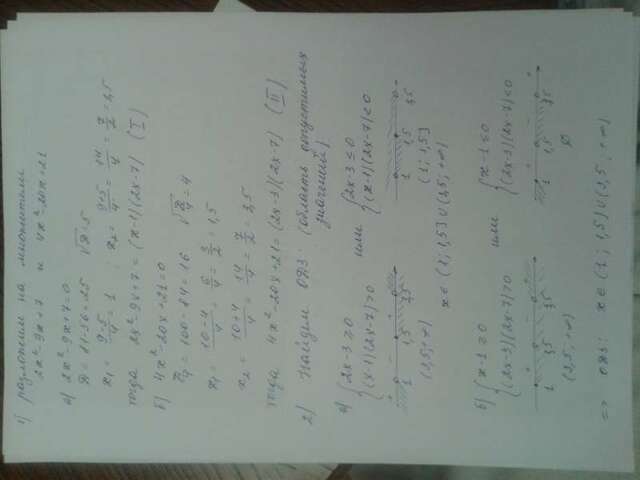 1) разложим на множители
2x²-9x+7 и 4x²-20x+21
а) 2x²-9x+7=0
D = 81-56=25 √D=5
x₁ = (9-5)/4 = 1 ; x₂ = (9+5)/4 = 14/4 = 7/2 = 3,5
тогда 2x²-9x+7 = (x-1)(2x-7) (I)
б) 4x²-20x+21=0
D/4 = 100-84=16 √(D/4)=4
x₁ = (10-4)/4 = 6/4 = 3/2 = 1,5
x₂ = (10+4)/4 = 14/4 = 7/2 = 3,5
тогда 4x²-20x+21 = (2x-3)(2x-7) (II)
2) Найдем ОДЗ: (область допустимых
значений)
а) {2x-3 ≥ 0 или {2x-3 ≤ 0
(x-1)(2x-7)>0 (x-1)(2x-7)<0
+ - +
1 1,5 3,5 1 1,5 3,5
(3,5; +∞) (1; 1,5]
x ∈ (1; 1,5] ∪ (3,5; +∞)
б) {x-1 ≥ 0 или {x-1 ≤ 0
(2x-3)(2x-7)>0 (2x-3)(2x-7)<0
+ - + + - +
1 1,5 3,5 1 1,5 3,5
(3,5; +∞) ∅
=> ОДЗ: x ∈ (1; 1,5] ∪ (3,5; +∞)